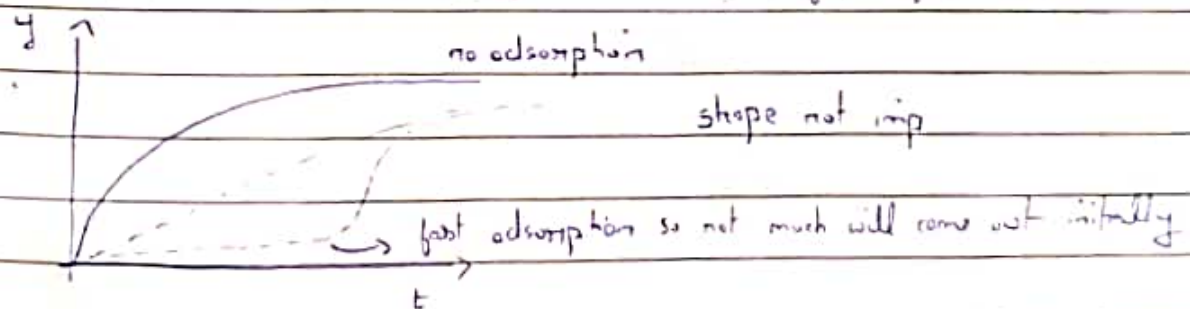 y
no adsorption
shape not imp
fast adsorption so not much will come out initially
t